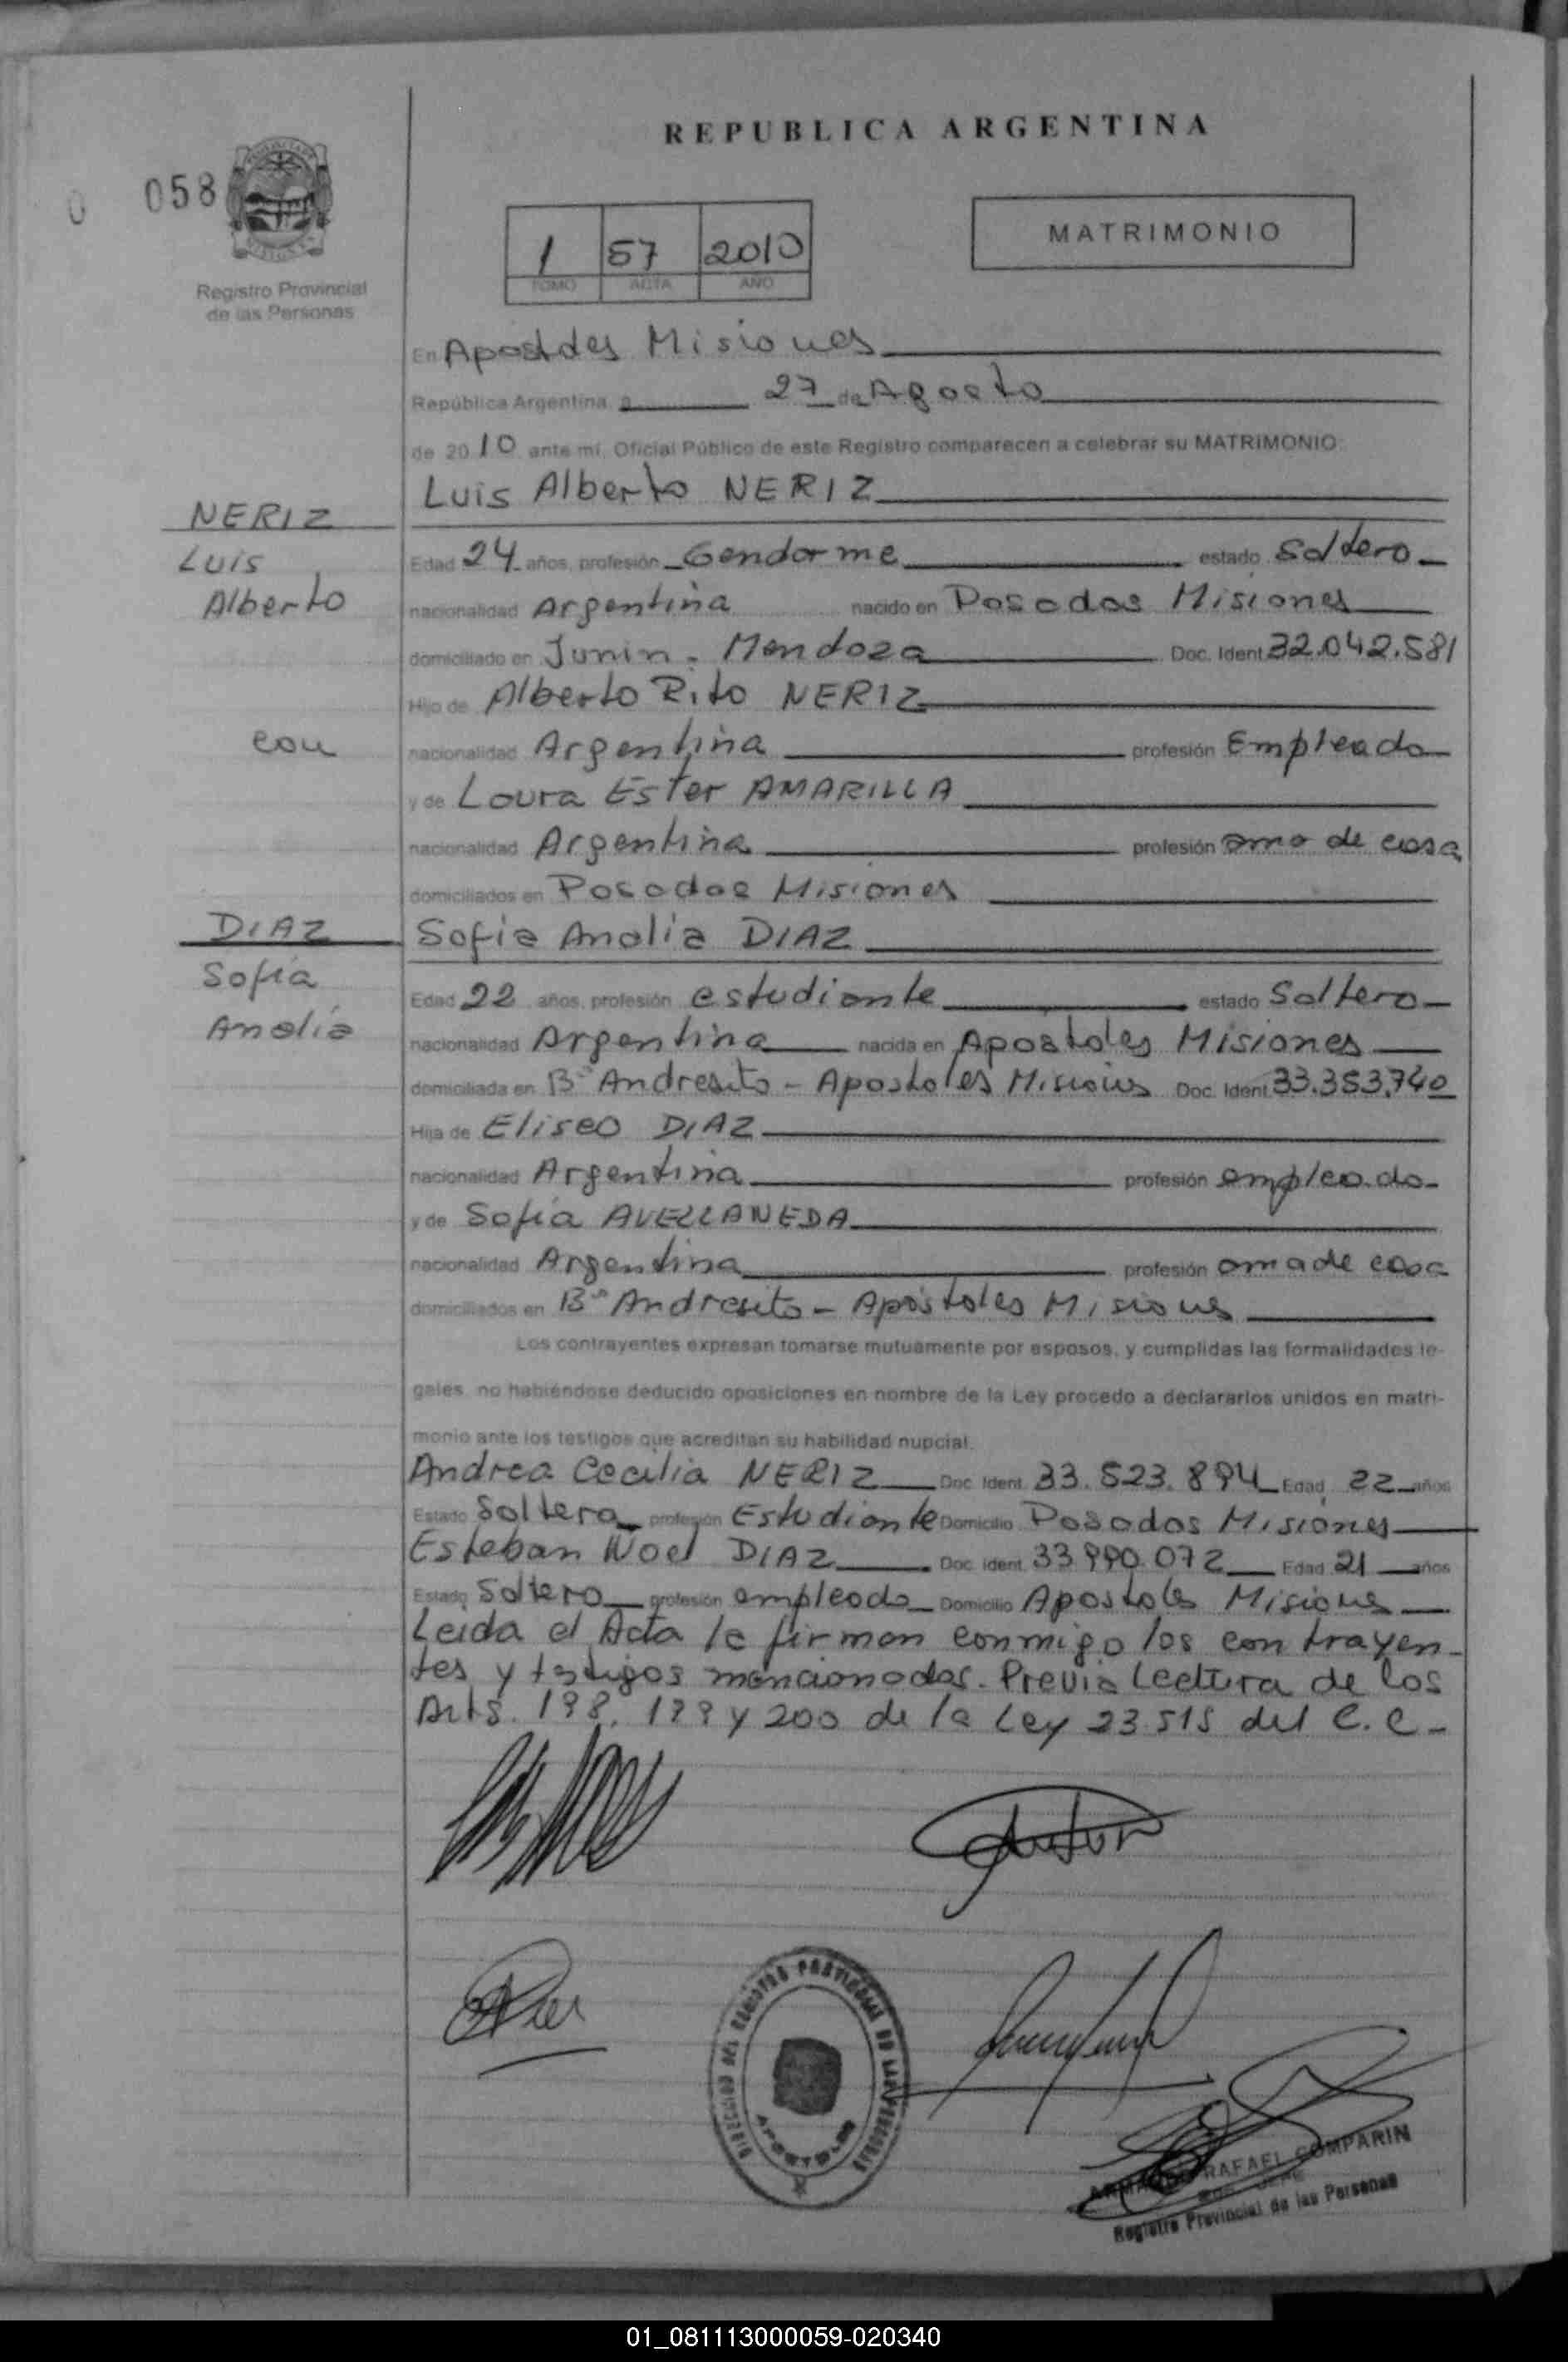 REPUBLICA ARGENTINA
058
1 57 2010
TOMO ACTA AÑO
MATRIMONIO
Registro Provincial
de las Personas
En Apostoles Misiones
República Argentina a 27 de Agosto
de 2010 ante mí, Oficial Público de este Registro comparecen a celebrar su MATRIMONIO:
Luis Alberto NERIZ
NERIZ
Luis
Alberto
Edad 24 años, profesión Gendarme estado Soltero
nacionalidad Argentina nacido en Posadas Misiones
domiciliado en Junin - Mendoza Doc. Ident. 32.042.581
Hijo de Alberto Rito NERIZ
con
nacionalidad Argentina profesión Empleado
y de Laura Ester AMARILLA
nacionalidad Argentina profesión ama de casa
domiciliados en Posadas Misiones
DIAZ
Sofía
Analía
Sofia Analia DIAZ
Edad 22 años, profesión estudiante estado Soltera
nacionalidad Argentina nacida en Apostoles Misiones
domiciliada en Bº Andresito - Apostoles Misiones Doc. Ident. 33.353.740
Hija de Eliseo DIAZ
nacionalidad Argentina profesión empleado
y de Sofía AVELLANEDA
nacionalidad Argentina profesión ama de casa
domiciliados en Bº Andresito - Apóstoles Misiones
Los contrayentes expresan tomarse mutuamente por esposos, y cumplidas las formalidades le-
gales, no habiéndose deducido oposiciones en nombre de la Ley procedo a declararlos unidos en matri-
monio ante los testigos que acreditan su habilidad nupcial.
Andrea Cecilia NERIZ Doc. Ident. 33.523.894 Edad 22 años
Estado Soltera profesión Estudiante Domicilio Posadas Misiones
Esteban Noel DIAZ Doc. Ident. 33.990.072 Edad 21 años
Estado Soltero profesión empleado Domicilio Apostoles Misiones
Leida el Acta la firman conmigo los contrayen-
tes y testigos mencionados. Previa Lectura de los
Arts. 198, 199 y 200 de la Ley 23.515 del C.C.
REGISTRO PROVINCIAL DE LAS PERSONAS
APOSTOLES
ARMANDO RAFAEL COMPARIN
JEFE
Registro Provincial de las Personas
01_081113000059-020340